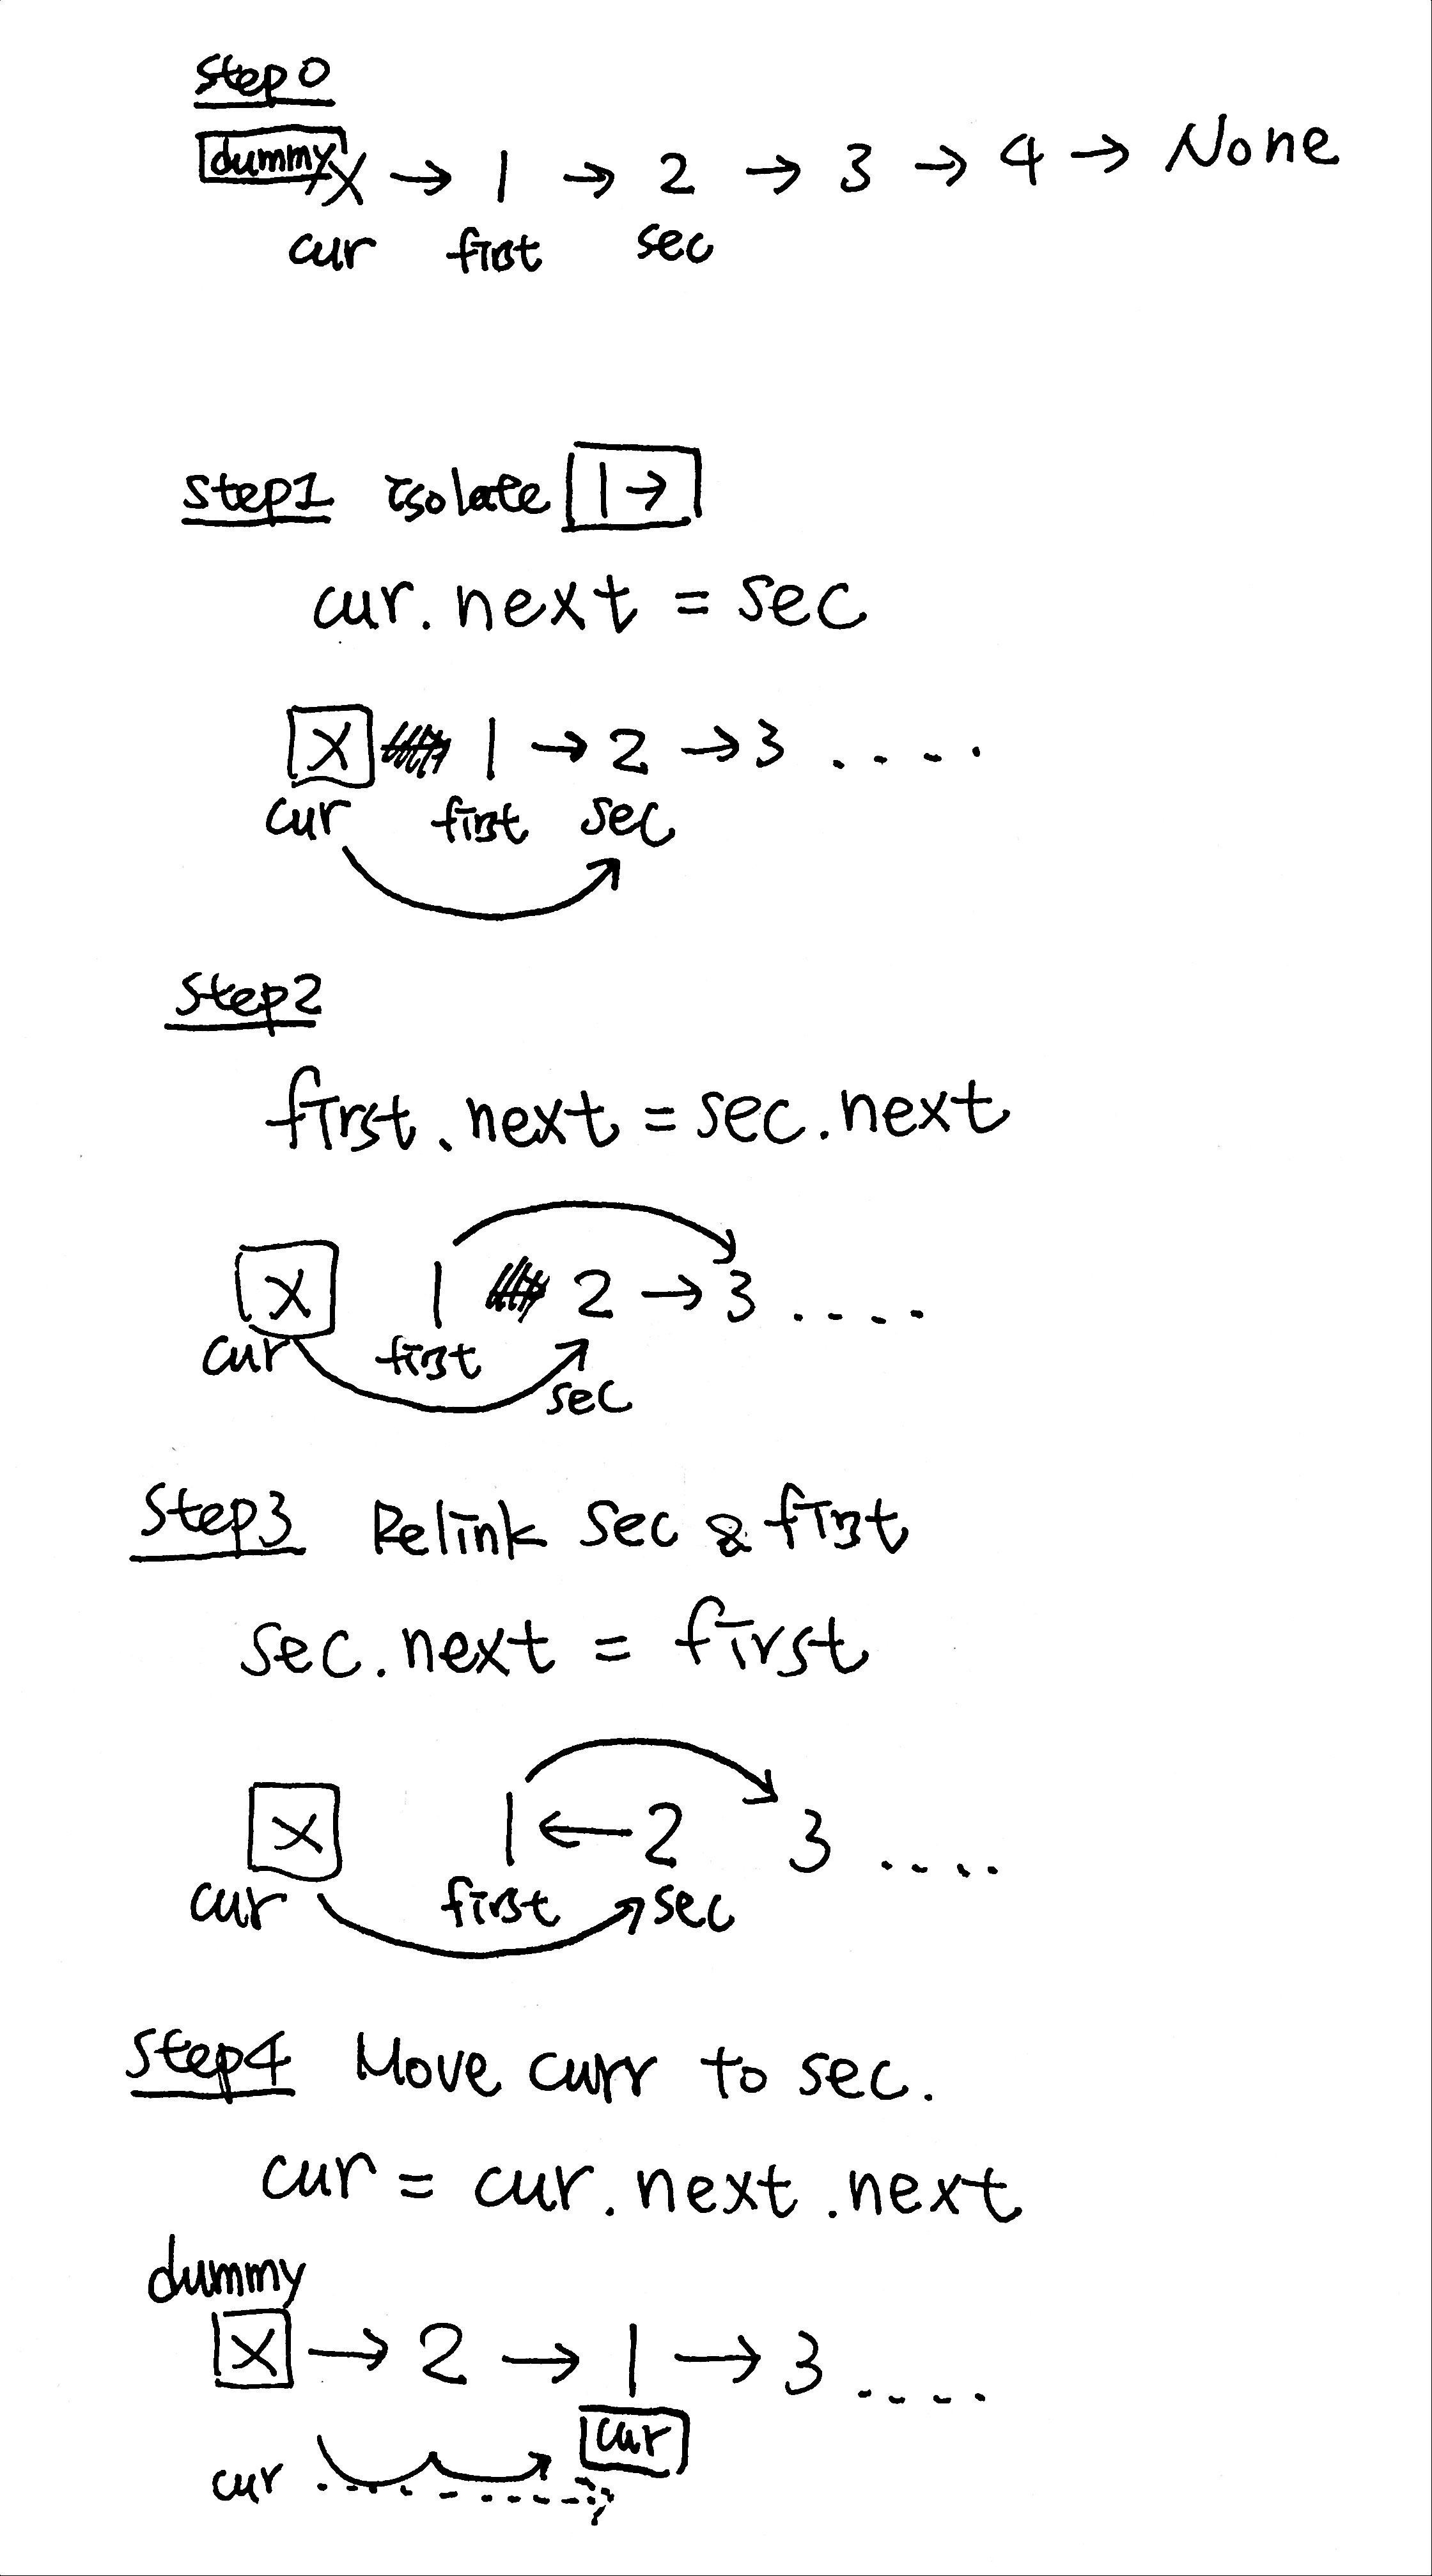 step0
dummy X → 1 → 2 → 3 → 4 → None
cur first sec
step1 isolate 1→
cur.next = sec
X 1 → 2 → 3 ....
cur first sec
step2
first.next = sec.next
X 1 2 → 3 ....
cur first
sec
step3 Relink sec & first
sec.next = first
X 1 ← 2 3 ....
cur first sec
step4 Move curr to sec.
cur = cur.next.next
dummy
X → 2 → 1 → 3 ....
cur
cur